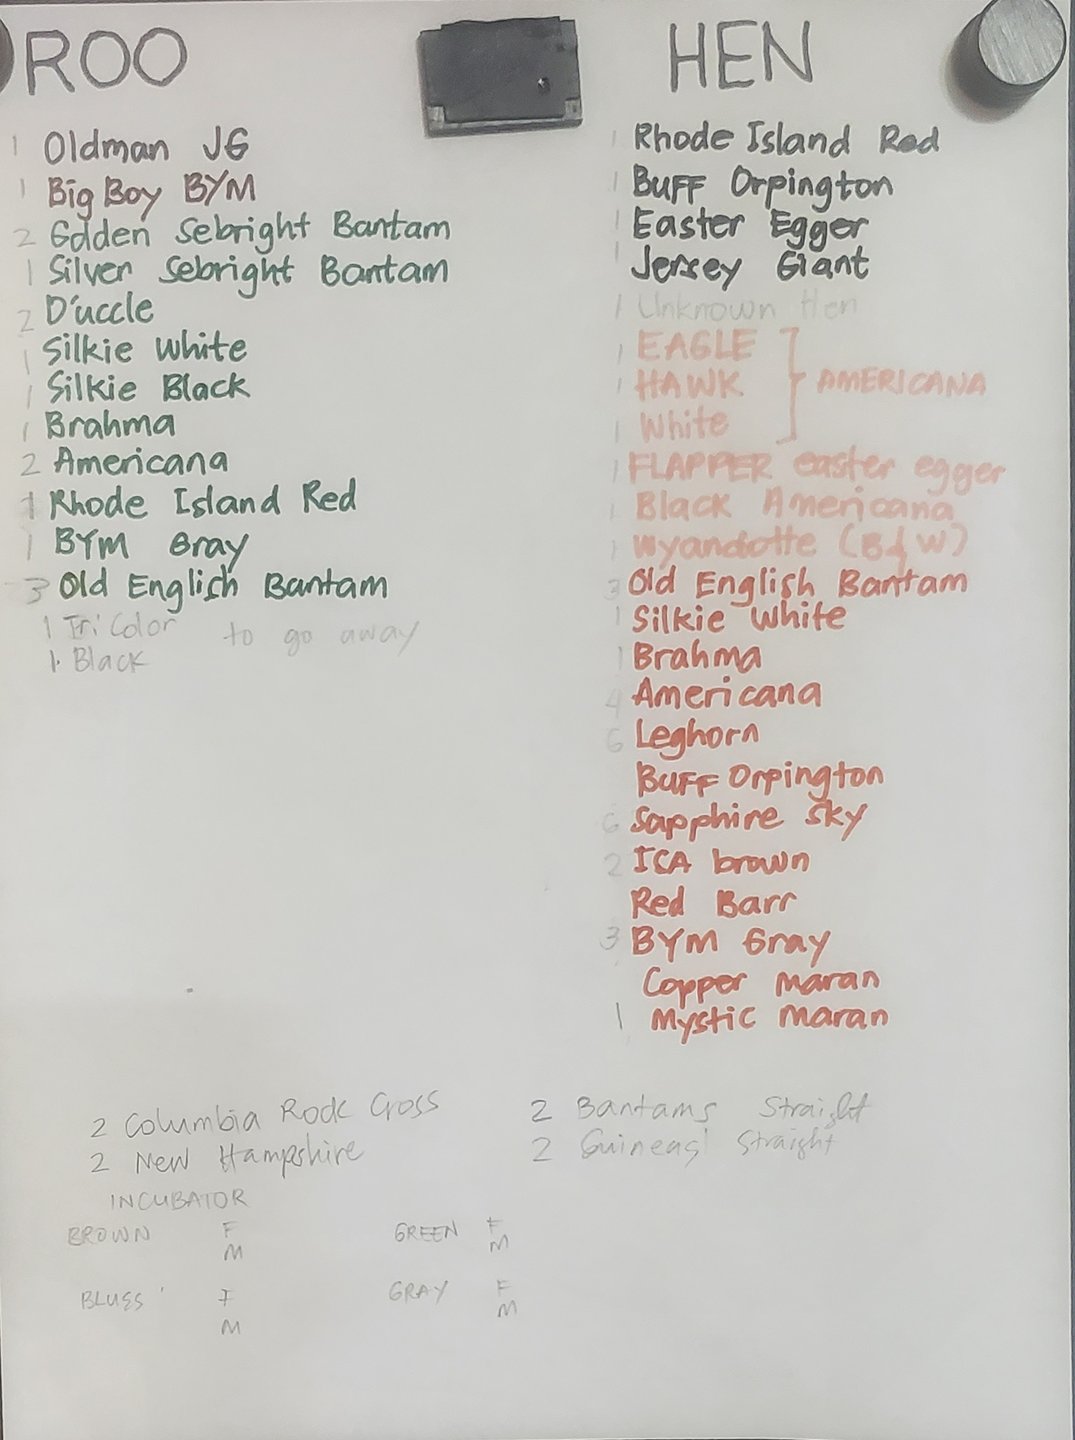 ROO
1 Oldman JG
1 Big Boy BYM
2 Golden Sebright Bantam
1 Silver Sebright Bantam
2 D'uccle
1 Silkie White
1 Silkie Black
1 Brahma
2 Americana
1 Rhode Island Red
1 BYM Gray
3 Old English Bantam
1 Tri Color to go away
1 Black
HEN
1 Rhode Island Red
1 Buff Orpington
1 Easter Egger
1 Jersey Giant
1 Unknown Hen
1 EAGLE
1 HAWK AMERICANA
1 White
1 FLAPPER easter egger
1 Black Americana
1 Wyandotte (B&W)
3 Old English Bantam
1 Silkie White
1 Brahma
4 Americana
6 Leghorn
Buff Orpington
6 Sapphire Sky
2 ICA brown
Red Barr
3 BYM Gray
Copper maran
1 Mystic maran
2 Columbia Rock Cross
2 New Hampshire
2 Bantams Straight
2 Guineas Straight
INCUBATOR
BROWN F
M
GREEN F
M
BLUES F
M
GRAY F
M